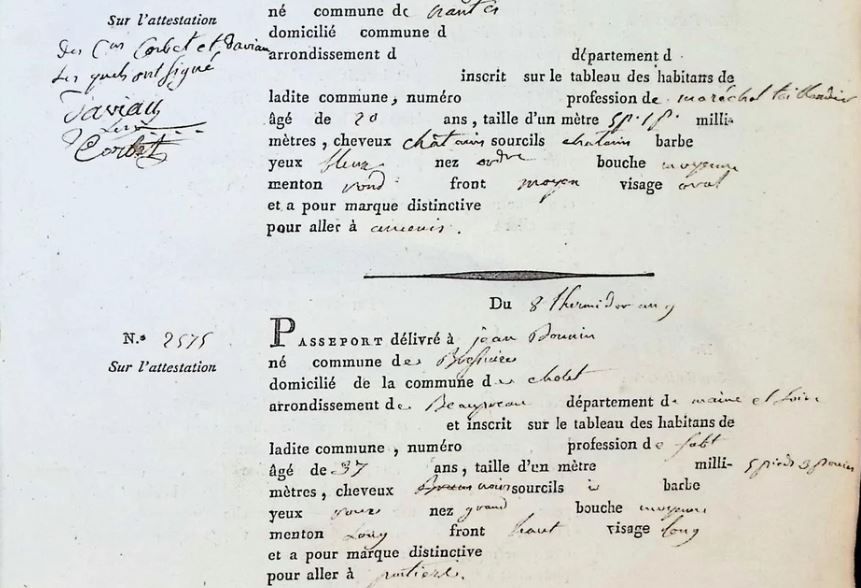 Sur l'attestation
des Cens Corbet et Daviau
Lesquels ont signé
Daviau
Corbet
né commune de nantes
domicilié commune d
arrondissement d département d
inscrit sur le tableau des habitans de
ladite commune, numéro profession de maréchal taillandier
âgé de 20 ans, taille d'un mètre 5p. 1p. milli-
mètres, cheveux chatains sourcils chatains barbe
yeux bleux nez ordre bouche moyenne
menton rond front moyen visage oval
et a pour marque distinctive
pour aller à ancenis.
Du 8 thermidor an 9
N.º 2575
Sur l'attestation
PASSEPORT délivré à jean
né commune de
domicilié de la commune de cholet
arrondissement de Beaupreau département de maine et Loire
et inscrit sur le tableau des habitans de
ladite commune, numéro profession de fabt
âgé de 37 ans, taille d'un mètre milli- 5 pieds 3 pouces
mètres, cheveux noirs sourcils barbe
yeux roux nez grand bouche moyenne
menton Long front haut visage long
et a pour marque distinctive
pour aller à